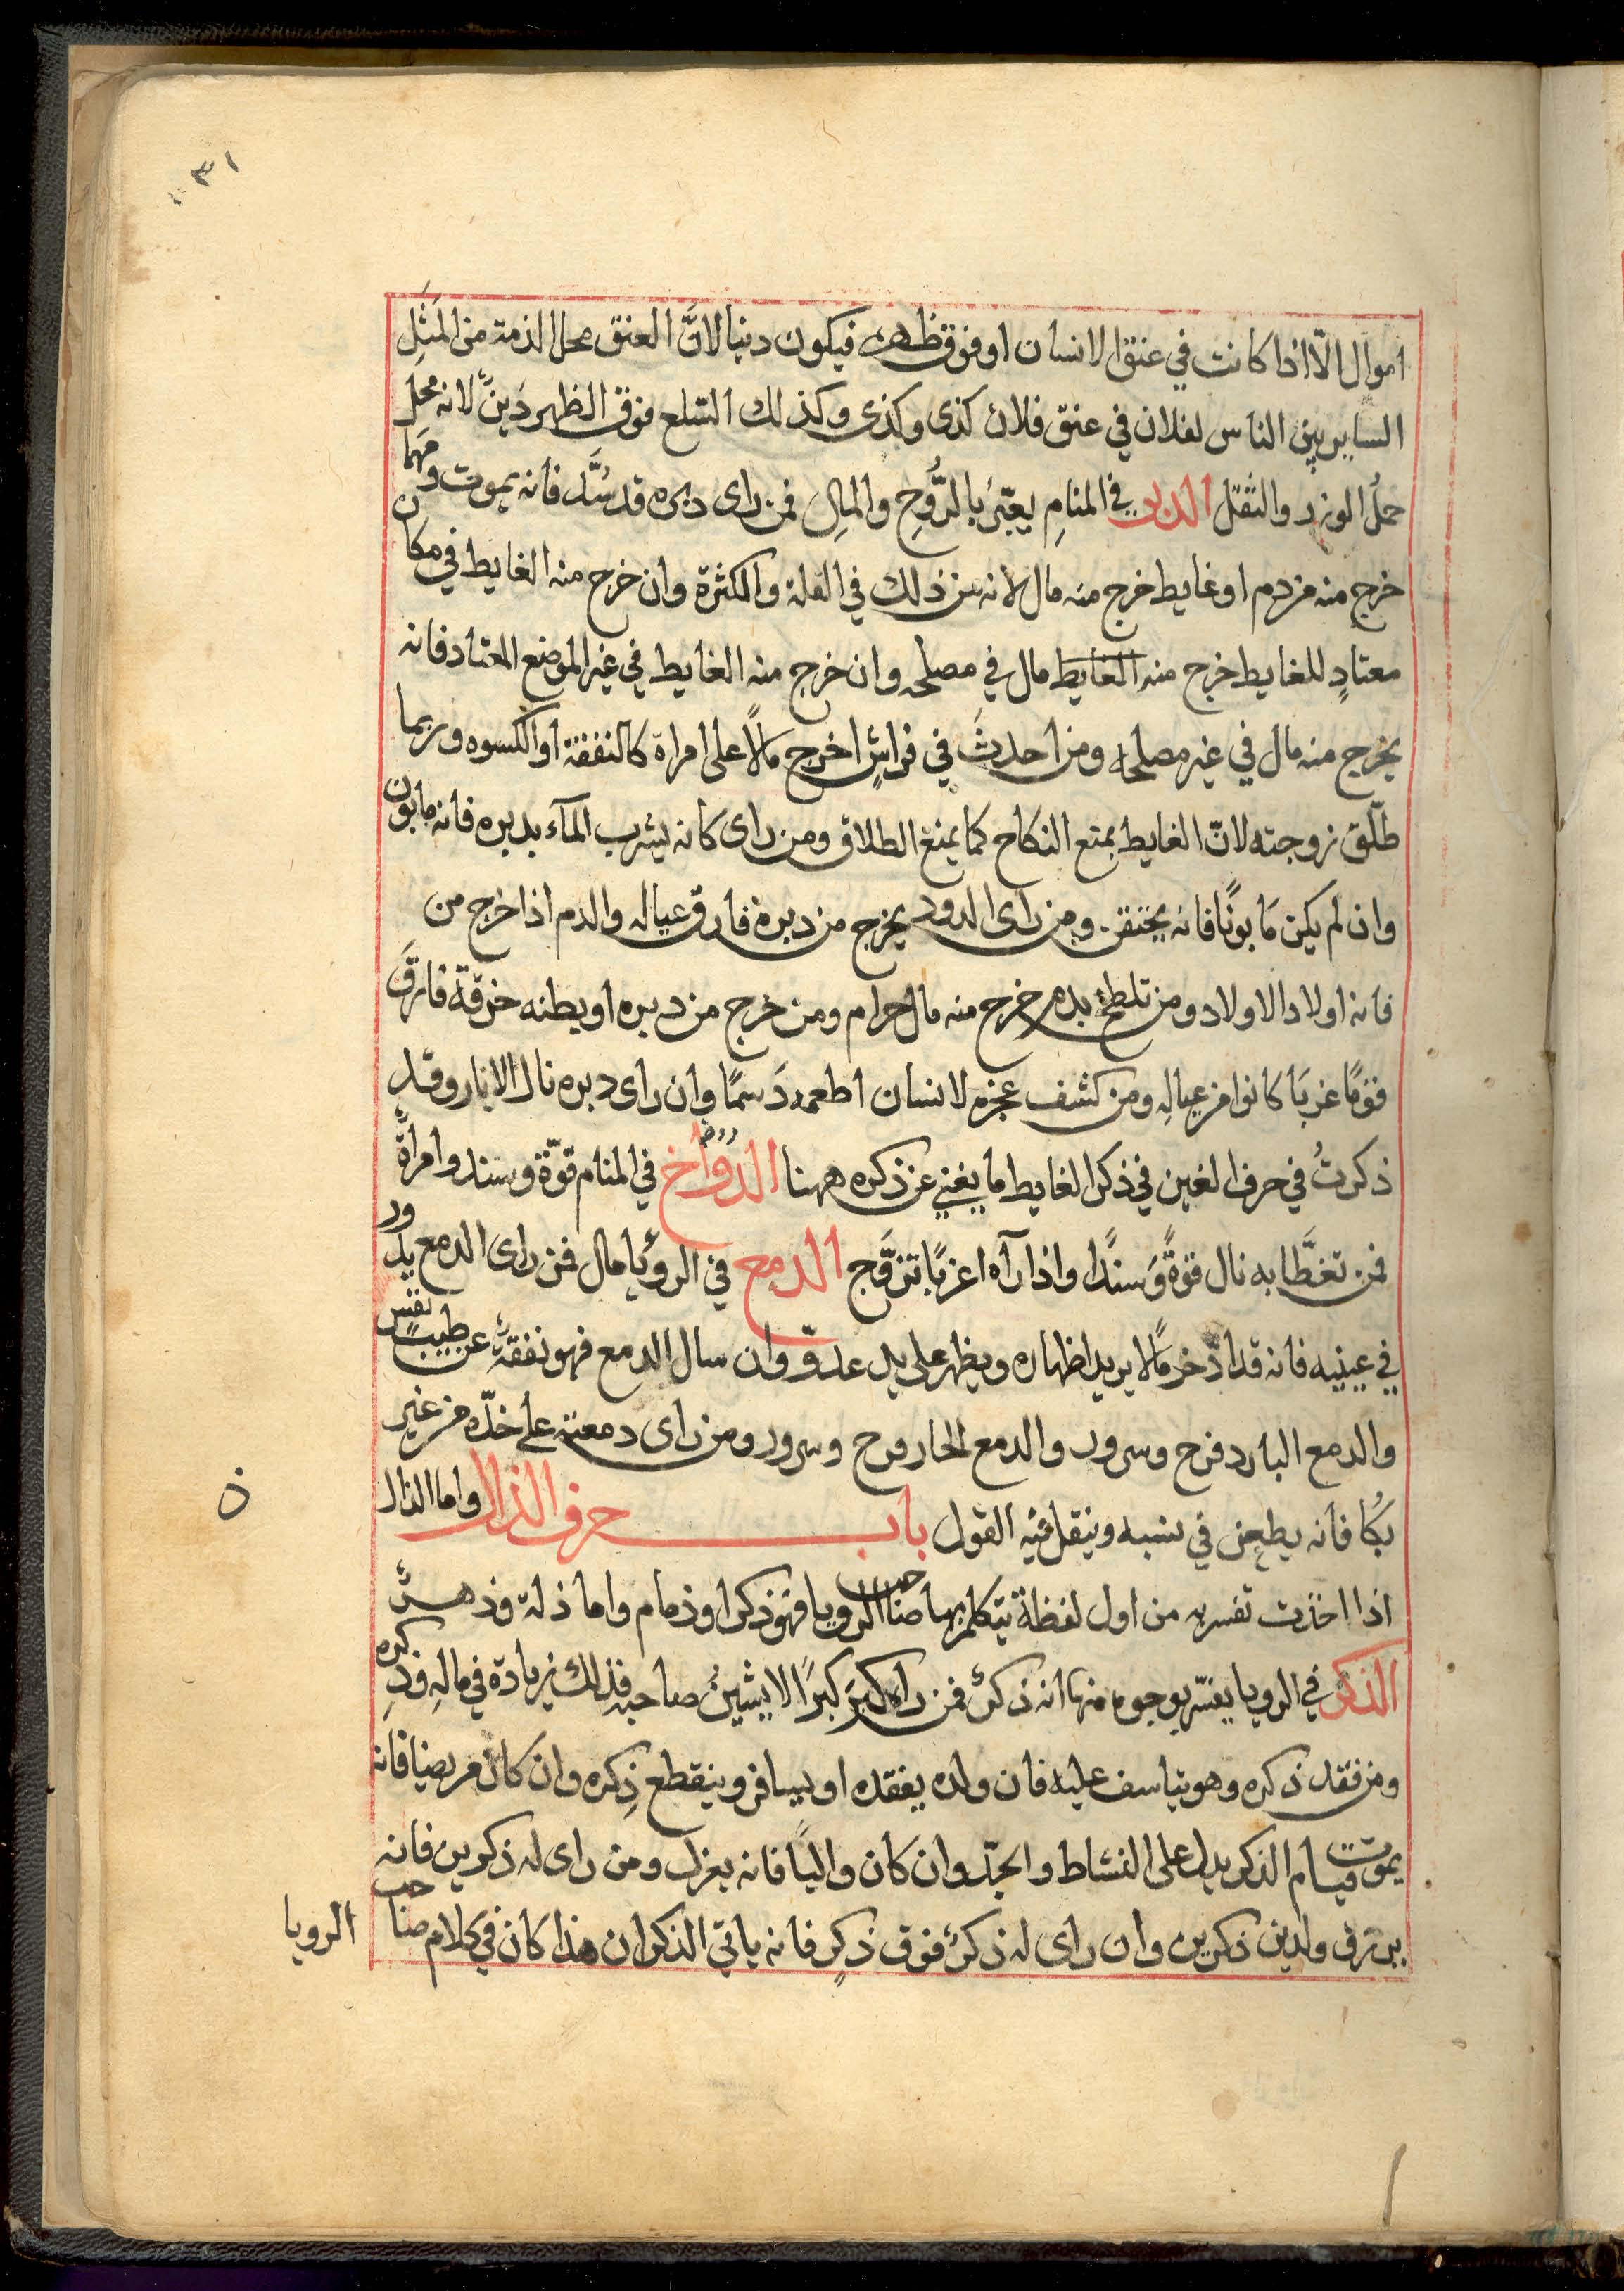 ٣١
اموال الّا اذا كانت في عنق الانسان او فوق ظهره فيكون دينا لانَّ العنق محل الذمة من المَثَلِ
الساير بين الناس لفلان في عنق فلان كذى وكذى وكذلك السّلع فوق الظهر دَينٌ لانه محَل
حملُ الوزر والثقل الدبر في المنامِ يعبّرُ بالرُّوحِ والمالِ فمن راى دبره قد سُدَّ فانه يموت ومهما
خرج منه من دم او غايط خرج منه مال لانه من ذلك في القلة والكثرة وان خرج منه الغايط في مكان
معتادٍ للغايط خرج منه الغايطَ مال في مصلحه وان خرج منه الغايط في غير الموضع المعتاد فانه
يخرج منه مال في غير مصلحه ومن احدثَ في فراشٍ اخرج مالاً على امراة كالنفقة او الكسوه وربما
طلّق زوجته لانّ الغايط يمنع النكاح كما يمنع الطلاق ومن راى كانه يشرب المآء بدبره فانه مابون
وان لم يكن مَابونًا فانه يحتقن ومن راى الدود يخرج من دبرهِ فارق عياله والدم اذا خرج من
فانه اولاد الاولاد ومن تلطخ بدم خرج منه مال حرام ومن خرج من دبره او بطنه خرقة فارقَ
قومًا غربَا كانوا من عيالهِ ومن كشف عجزه لانسان اطعمه دَسمًا وان راى دبره نال الادبار وقد
ذكرتُ في حرف الغين في ذكر الغايط ما يغني عن ذكره ههنا الدوّاخ في المنام قوّة وسند وامراةٌ
فمن تغطَّا به نال قوةً وَسندًا واذا رآه اعزبًا تزوَّج الدمع في الرؤيا مال فمن راى الدمع يدور
في عينيه فانه قد ادّخر مالا يريد اظهاره ويظهر على يد عدوّ وان سال الدمع فهو نفقةٌ عن طيب نفس
والدمع البارد فرح وسرور والدمع الحار فرح وسرور ومن راى دمعته على خدّه من غير
بكُا فانه يطعن في نسبه وينقل فيه القول باب حرف الذال واما الذال
ذ
اذا اخذت تفسره من اول لفظة يتكلم بها صاحب الرويا فهو ذكر او ذمام واما ذلة وذهب
الذكر في الرويا يفسّر بوجوه منها انه ذكرٌ فمن راه كبرَ كبرًا لا يشينُ صاحبه فذلك زيادة في مالهِ وذِكره
ومن فقد ذكره وهو يتاسف عليه فان ولده يفقده او يسافر وينقطع ذِكره وان كان مريضا فانه
يموت قيام الذكر يدل على النشاط والجدّ وان كان واليًا فانه يعزل ومن راى له ذكرين فانه
يرزق ولدين ذكرين وان راى له ذكرٌ فوق ذكرٍ فانه ياتي الذكران هذا كان في كلام صاحب
الرويا